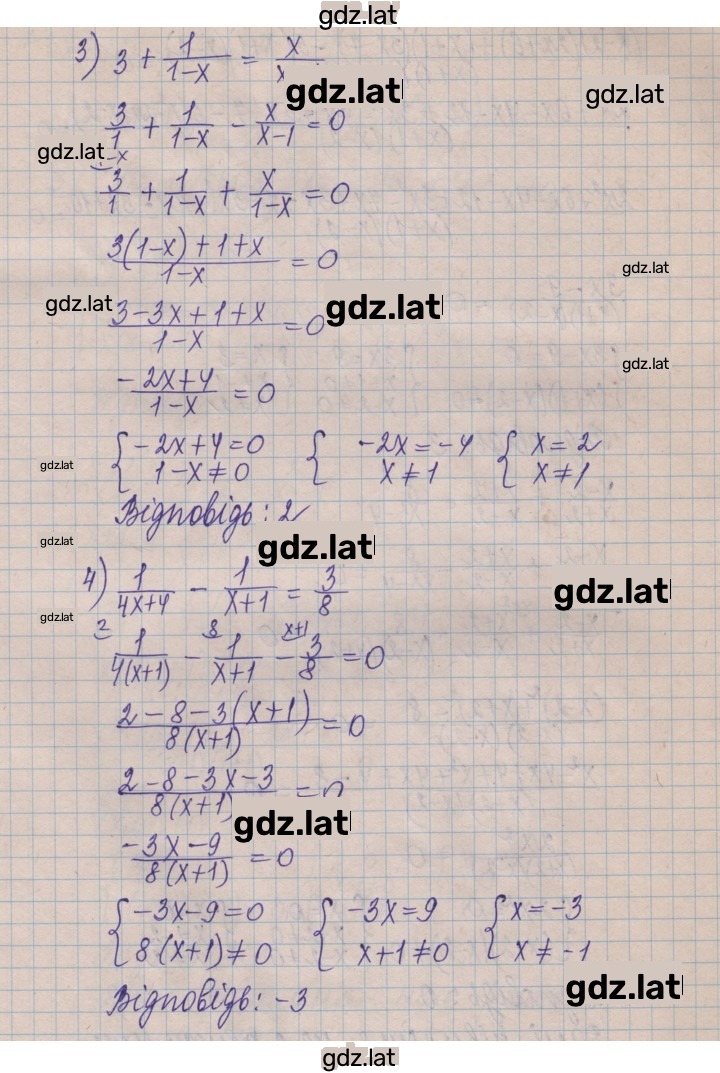 gdz.lat
3) 3 + 1/(1-x) = x/x
gdz.lat gdz.lat
3/1 + 1/(1-x) - x/(x-1) = 0
gdz.lat -x
3/1 + 1/(1-x) + x/(1-x) = 0
(3(1-x)+1+x)/(1-x) = 0
gdz.lat
gdz.lat gdz.lat
(3-3x+1+x)/(1-x) = 0
gdz.lat
(-2x+4)/(1-x) = 0
{-2x+4=0 {-2x=-4 {x=2
gdz.lat 1-x≠0 x≠1 x≠1
Відповідь: 2
gdz.lat gdz.lat
4) 1/(4x+4) - 1/(x+1) = 3/8
gdz.lat
gdz.lat
2 8 x+1
1/(4(x+1)) - 1/(x+1) - 3/8 = 0
(2-8-3(x+1))/(8(x+1)) = 0
(2-8-3x-3)/(8(x+1)) = 0
gdz.lat
(-3x-9)/(8(x+1)) = 0
{-3x-9=0 {-3x=9 {x=-3
8(x+1)≠0 x+1≠0 x≠-1
gdz.lat
Відповідь: -3
gdz.lat